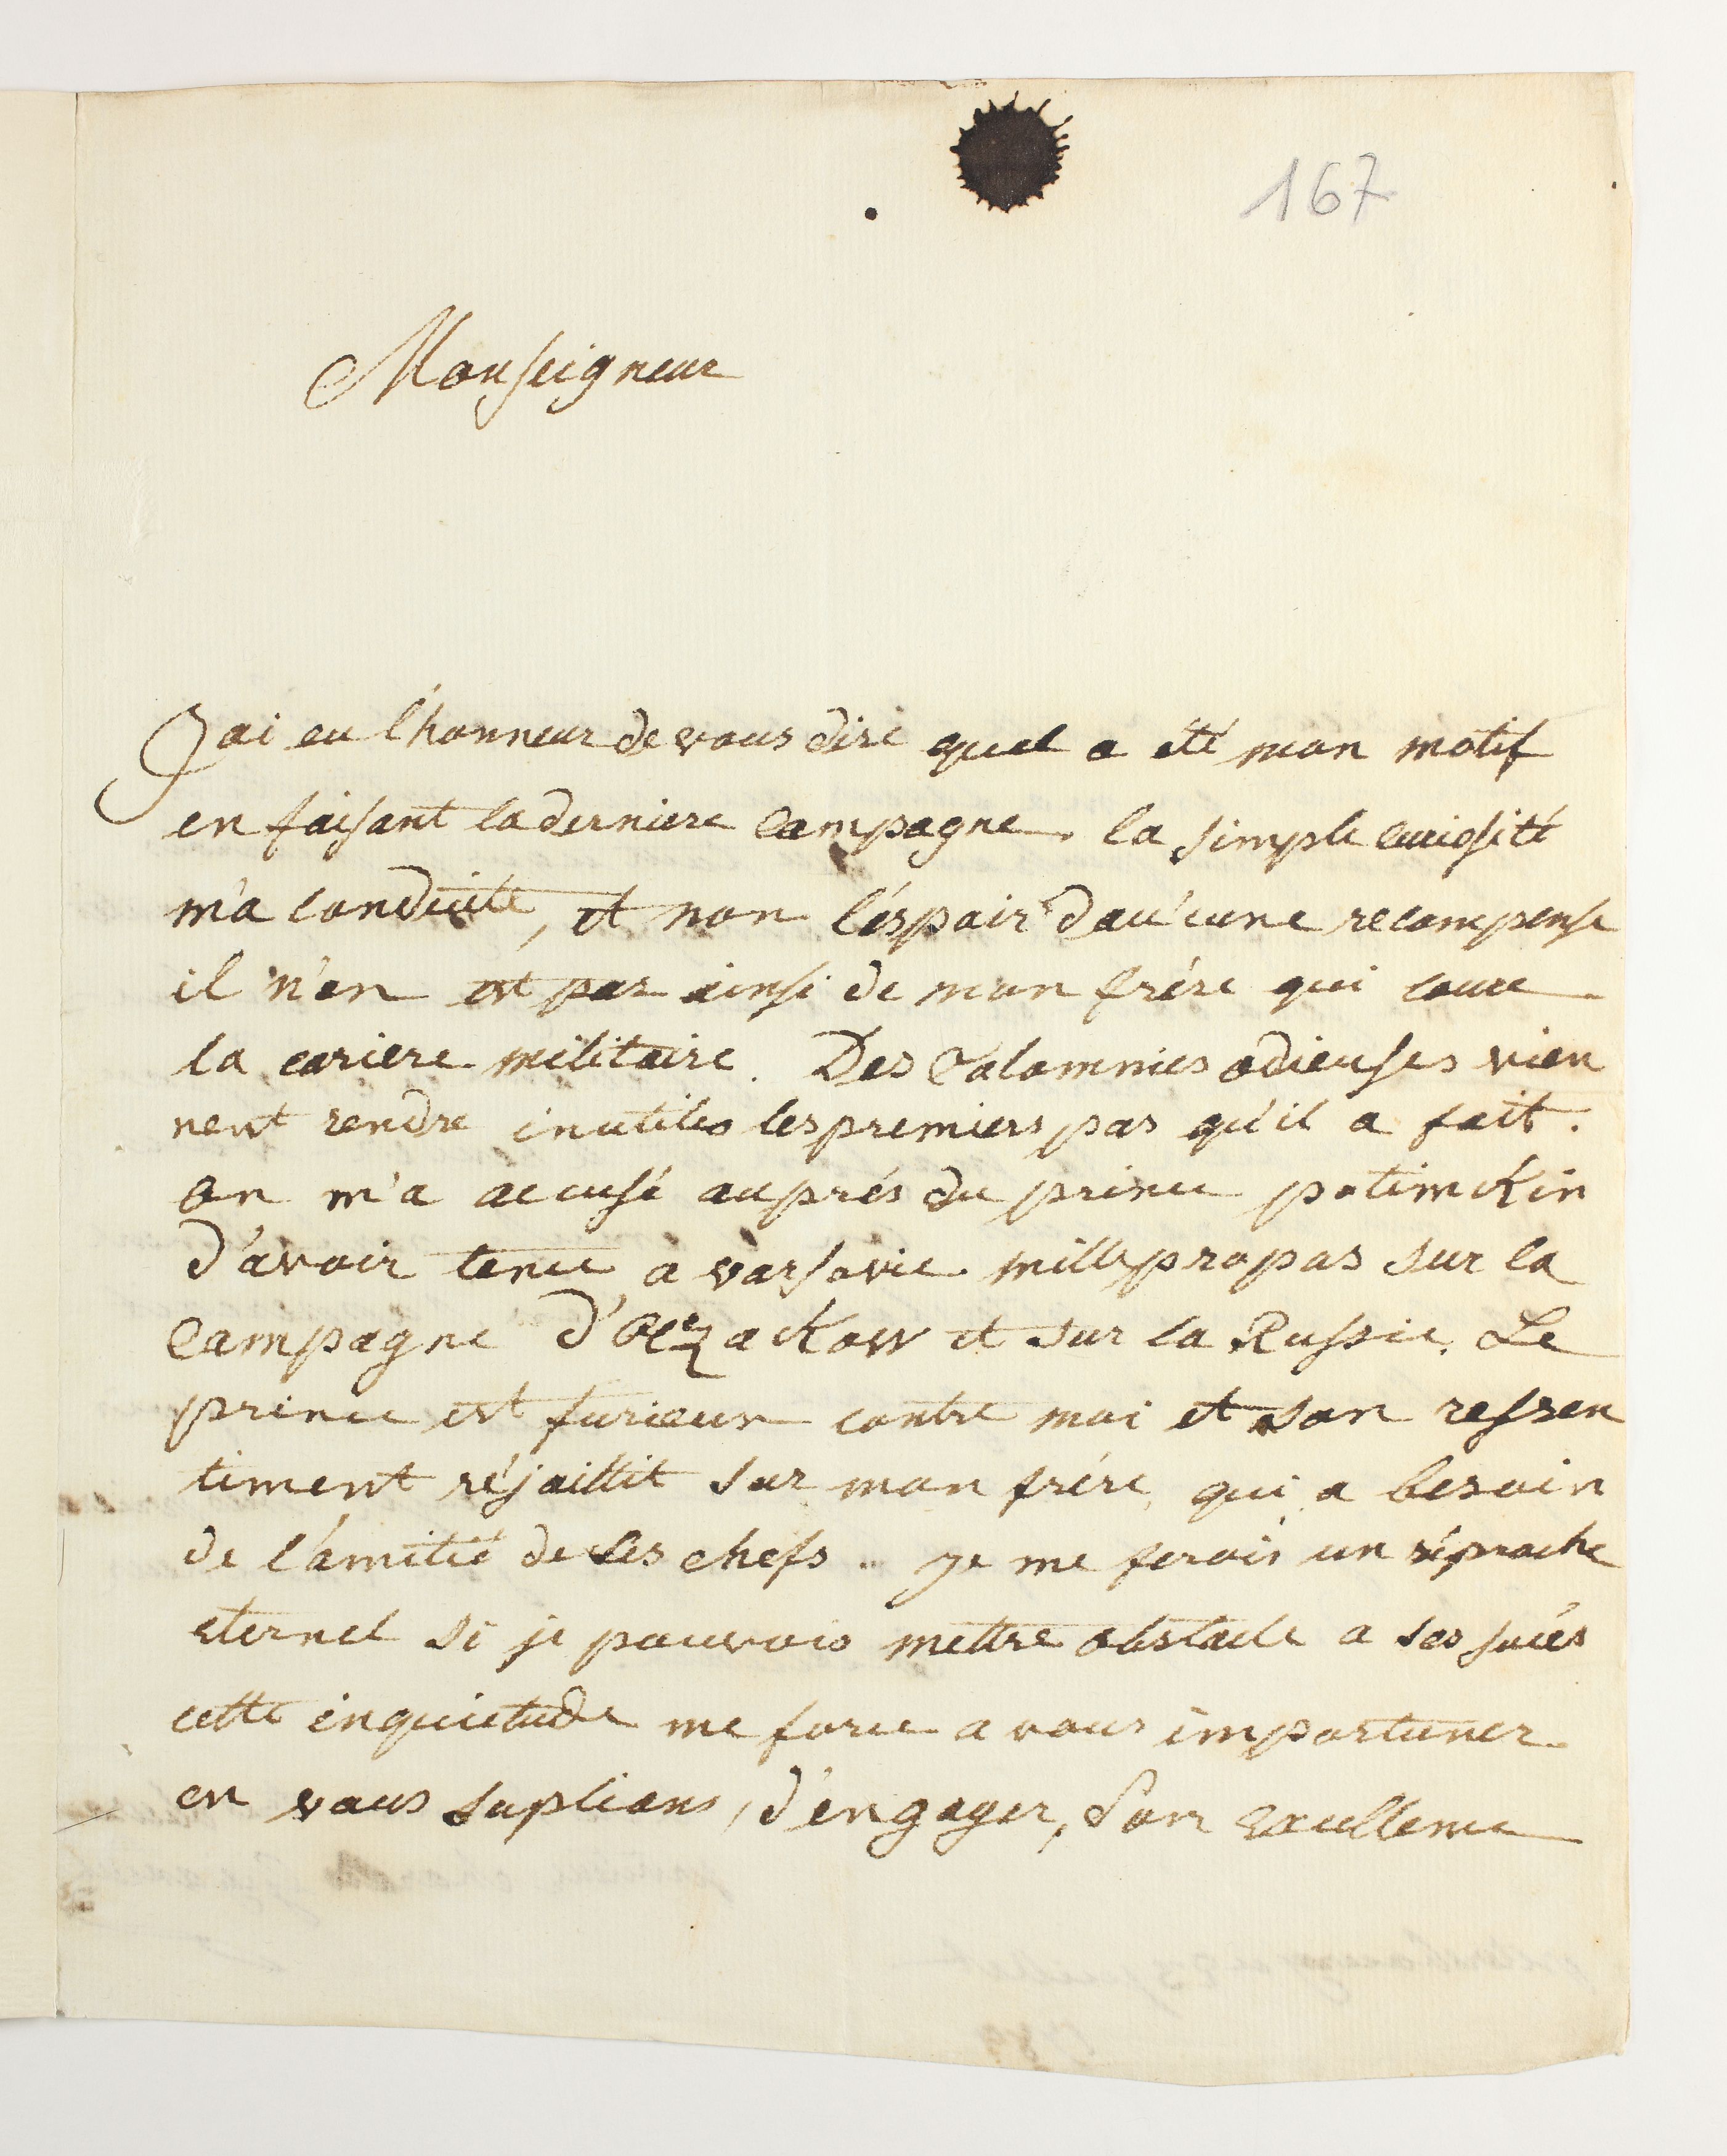 167
Monseigneur
Jai eu l'honneur de vous dire quel a été mon motif
en faisant la derniere campagne. la simple curiosité
m'a conduite, et non l'éspoir d'au'cune recompense
il n'en est pas ainsi de mon frére qui coure
la cariere militaire. Des Calomnies odieuses vien
nent rendre inutiles les premiers pas qu'il a fait.
on m'a accusé auprés du prince potimckin
d'avoir tenue a varsovie mille propos sur la
Campagne d'Oczackow et sur la Russie. Le
prince est furieux contre moi et son ressen
timent réjaillit sur mon frére, qui a besoin
de l'amitié de ses chefs. je me ferois un réproche
eternel si je pouvois mettre obstacle a ses sucés
cette inquietude me force a vous importuner
en vous suplians, d'engager, Son Excellence